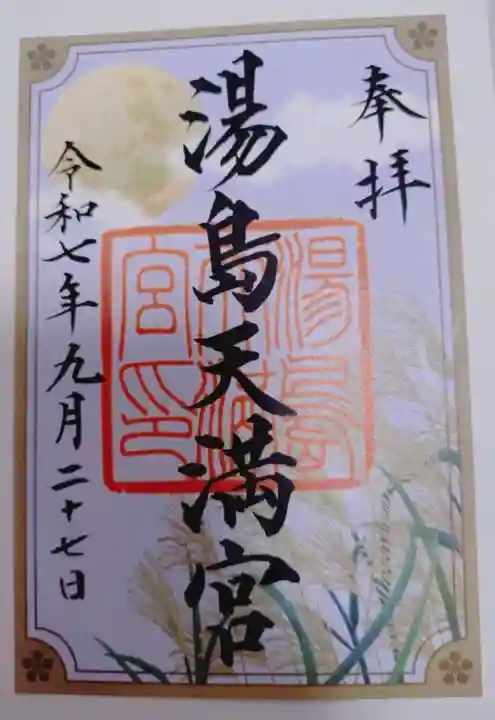 奉拝
湯島天満宮
湯島天満宮印
令和七年九月二十七日